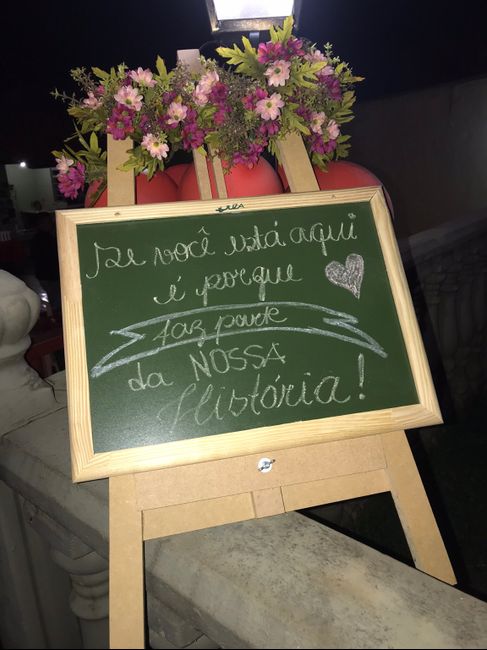 Se você está aqui
é porque
faz parte
da NOSSA
História!